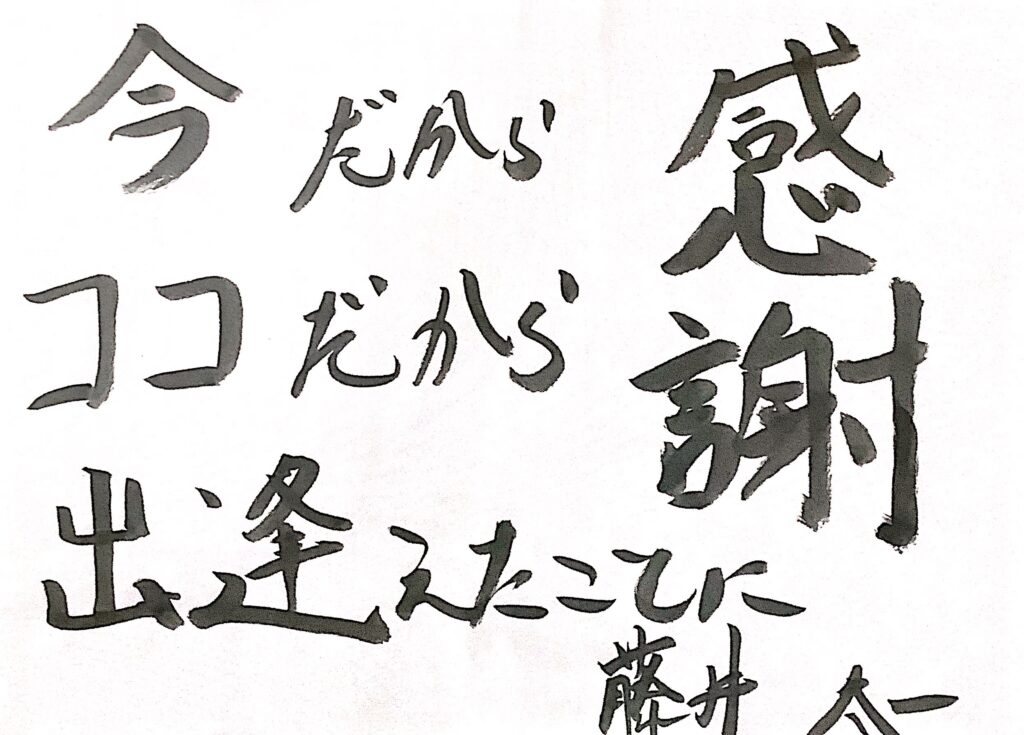 今だから
ココだから
出逢えたことに
感謝
藤井 一